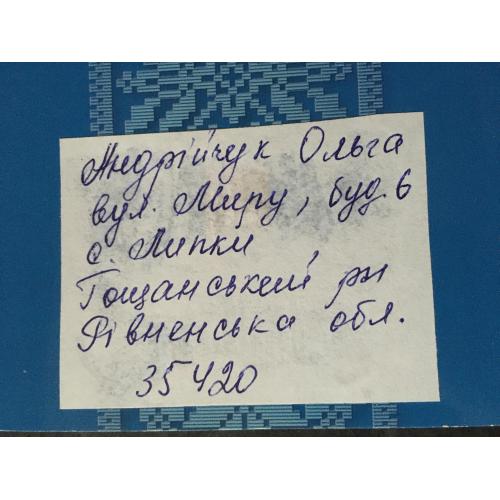 Андрійчук Ольга
вул. Миру, буд. 6
с. Липки
Гощанський рн
Рівненська обл.
35420